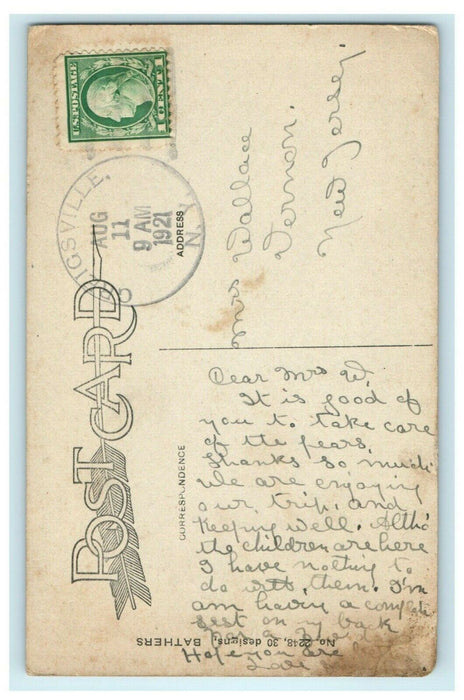 U.S. POSTAGE
1 CENT 1
IGSVILLE,
AUG
11
9 AM
1921
N.Y.
ADDRESS
Mrs Wallace
Vernon.
New Jersey.
POST CARD
CORRESPONDENCE
Dear Mrs W,
It is good of
you to take care
of the pears,
thanks so much
we are enjoying
our trip, and
keeping well. Altho'
the children are here
I have nothing to
do with them. I'm
am having a complete
rest on my back
Hope you are
Love
No. 2248, 30 designs, BATHERS